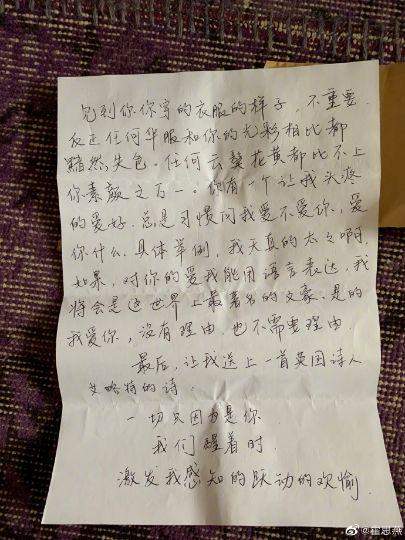 见到你你穿的衣服的样子，不重要
反正任何华服和你的光彩相比都
黯然失色，任何云鬓花黄都比不上
你素颜之万一。你有一个让我头疼
的爱好，总是习惯问我爱不爱你，爱
你什么，具体举例，我天真的太太啊，
如果，对你的爱我能用语言表达，我
将会是这世界上最著名的文豪，是的
我爱你，没有理由，也不需要理由
最后，让我送上一首英国诗人
艾略特的诗：
一切只因为是你
我们醒着时
激发我感知的跃动的欢愉
@霍思燕